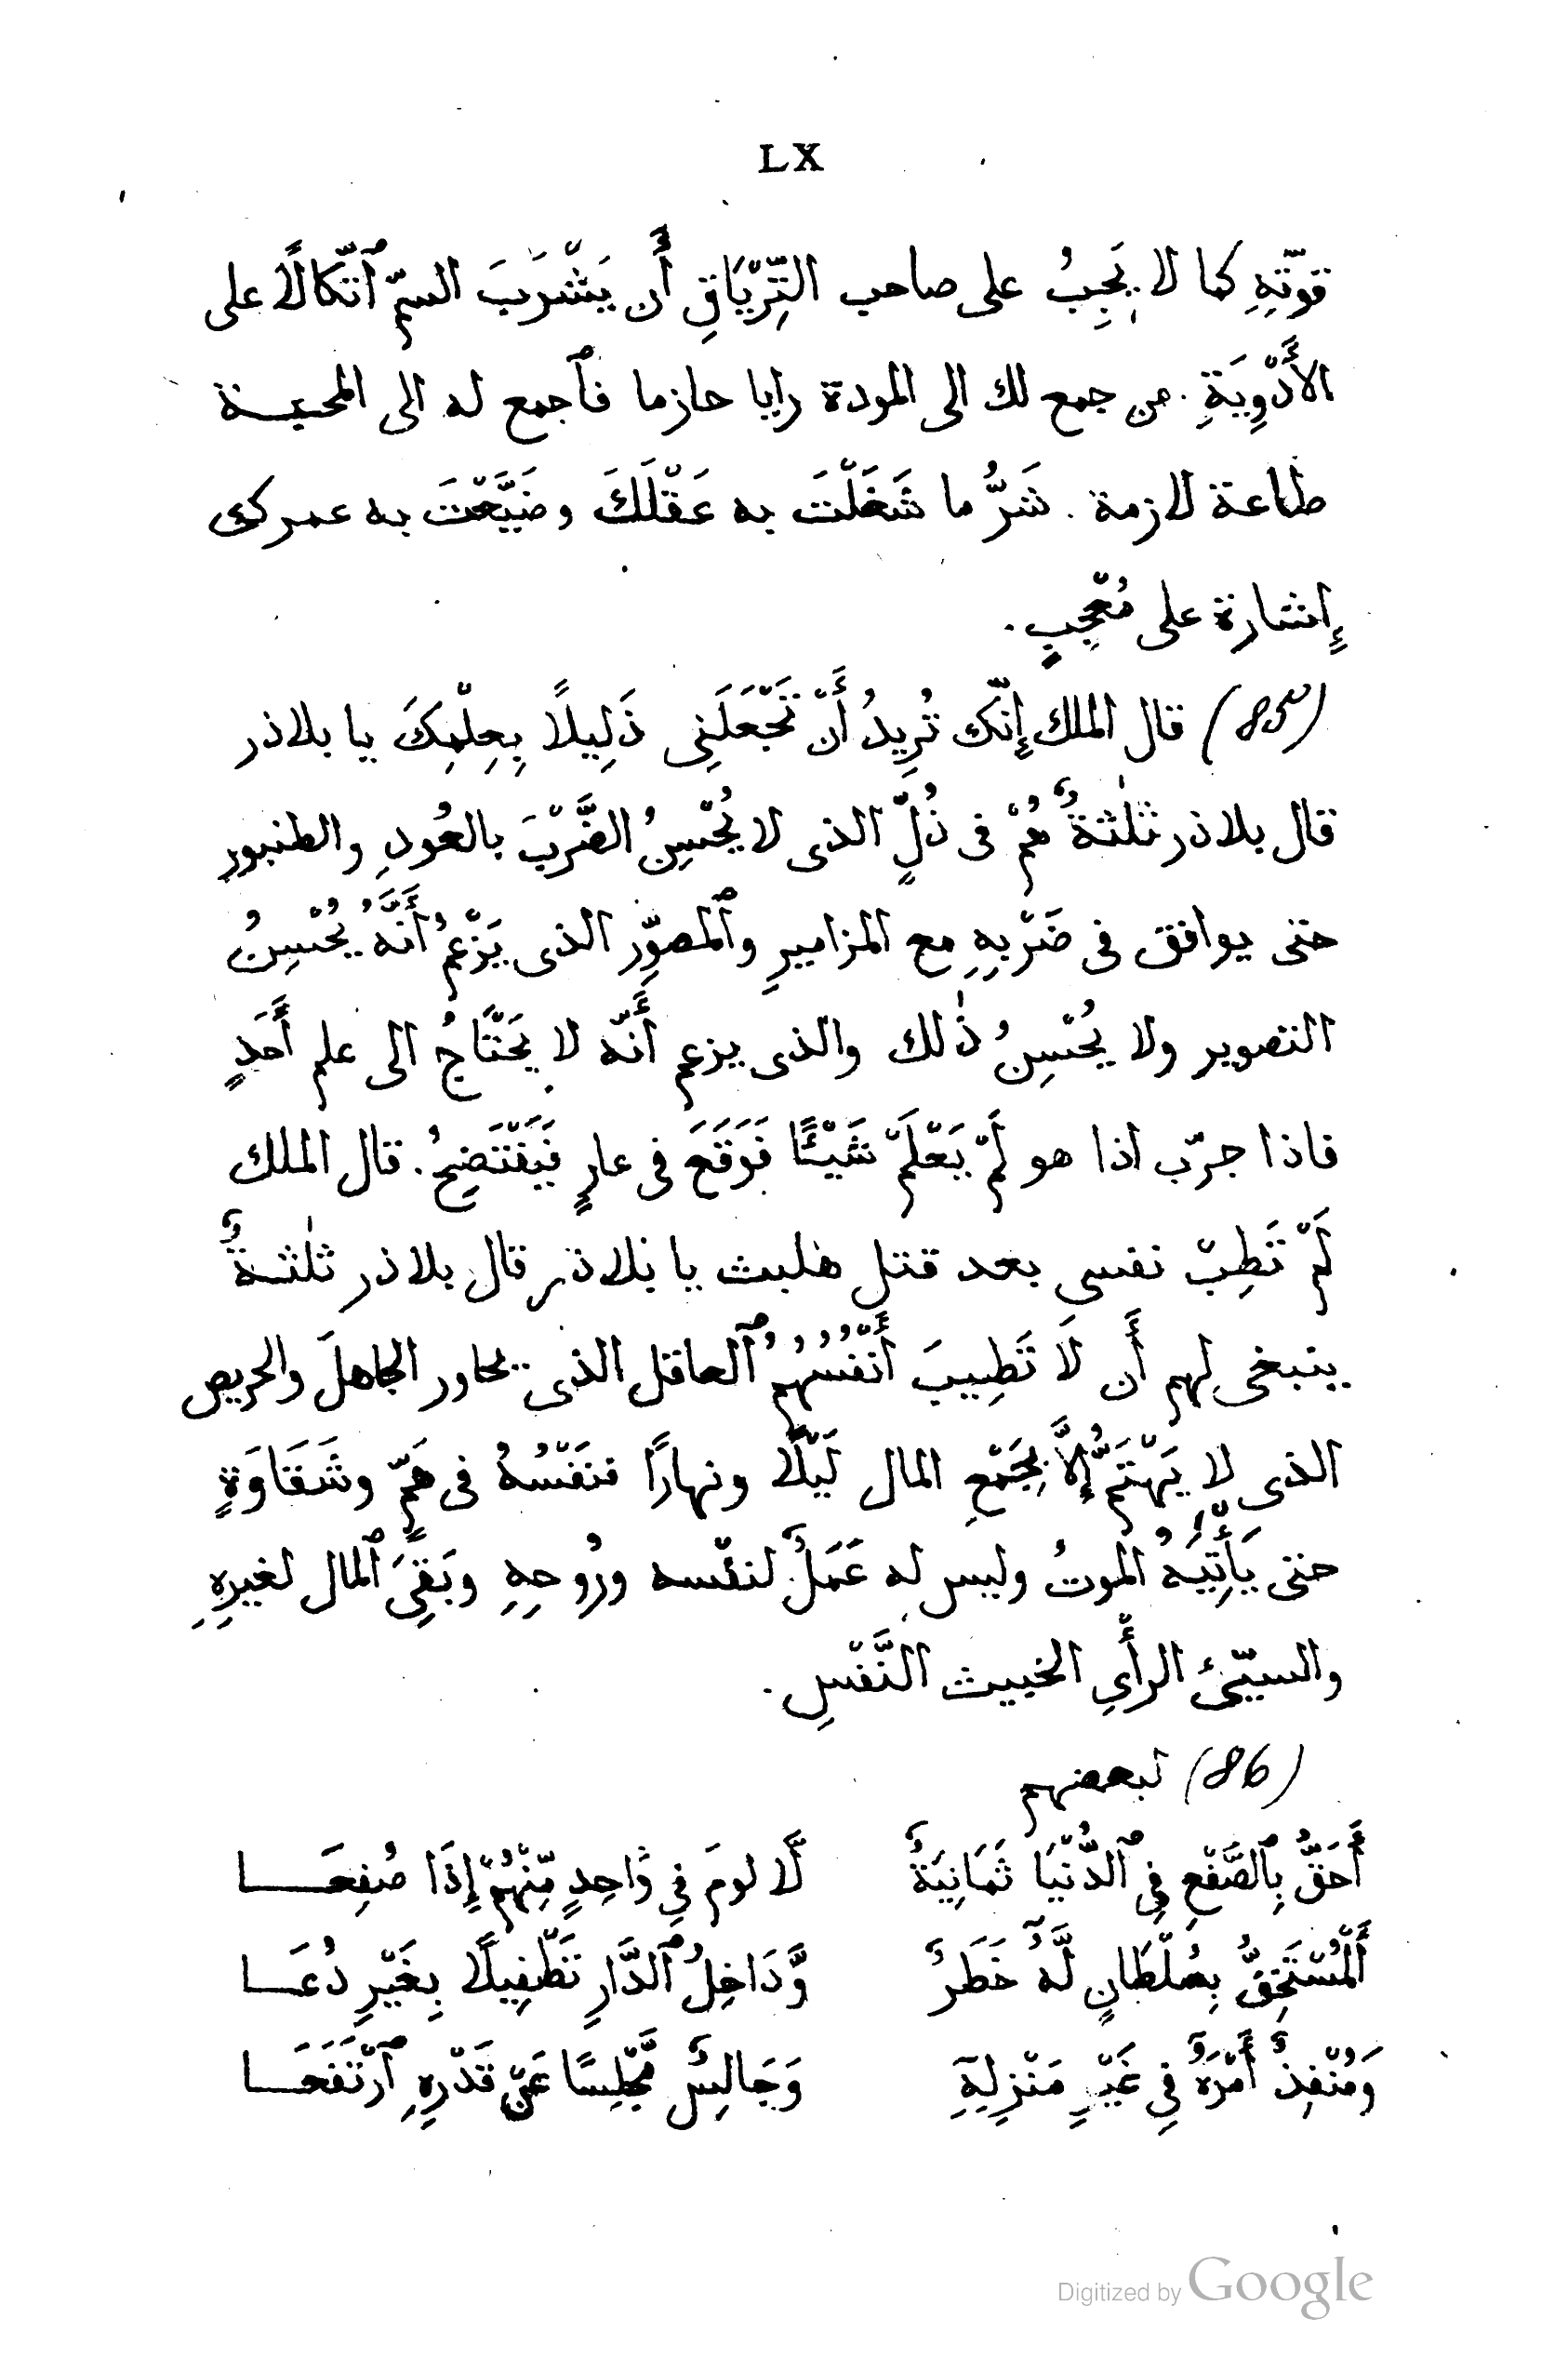 LX
قوّتِهِ كما لا يَجِبُ على صاحب التِّرْيَاقِ أَن يَشْرَبَ السمّ ٱتّكالًا على
الأَدْوِيَةِ . من جمع لك الى المودة رايا حازما فٱجمع له الى المحبة
طاعة لازمة . شَرُّ ما شَغَلْتَ به عَقْلَكَ وضَيَّعْتَ به عمرك
إشارة على مُعْجِبٍ .
(85) قال الملك إِنّك تُرِيدُ أَنْ تَجْعَلَنِى ذَلِيلًا بِعِلْمِكَ يا بلاذر
قال بلاذر ثلٰثةٌ هُمْ فى ذُلٍّ الذى لا يُحْسِنُ الضَّرْبَ بالعُودِ والطنبور
حتى يوافق فى ضَرْبِهِ مع المزاميرِ وٱلمصوِّر الذى يَزْعُمُ أَنَّهُ يُحْسِنُ
التصوير ولا يُحْسِنُ ذٰلك والذى يزعم أَنّه لا يَحْتَاجُ الى علم أَحَدٍ
فاذا جرّب اذا هو لَمْ يَعْلَمْ شَيْئًا فَوَقَعَ فى عارٍ فَيَفْتَضِحُ . قال الملك
لَمْ تَطِبْ نفسى بعد قتل هلبث يا بلاذر قال بلاذر ثلٰثةٌ
ينبغى لهم أَن لَا تَطِيبَ أَنْفُسُهُمُ ٱلعاقل الذى يحاور الجاهلَ والحريص
الذى لا يَهْتَمُّ إِلَّا بِجَمْعِ المال لَيْلًا ونهارًا فنَفْسُهُ فى هَمٍّ وشَقَاوَةٍ
حتى يَأْتِيَهُ الموتُ وليس له عَمَلٌ لنفْسه ورُوحِهِ وبَقِىَ ٱلمال لغيرِهِ
والسيّئ الرأْىِ الخبيث النَّفْسِ .
(86) لبعضهم
أَحَقُّ بِٱلصَّفْعِ فِى ٱلدُّنْيَا ثَمَانِيَةٌ لَّا لومَ فِى وَاحِدٍ مِّنْهُمْ إِذَا صُفِعَا
أَلْمُسْتَخِفُّ بِسُلْطَانٍ لَّهُ خَطَرٌ وَّدَاخِلُ ٱلدَّارِ تَطْفِيلًا بِغَيْرِ دُعَا
وَمُنْفِذٌ أَمْرَهُ فِى غَيْرِ مَنْزِلِهِ وَجَالِسٌ مَّجْلِسًا عَنْ قَدْرِهِ ٱرْتَفَعَا
Digitized by Google